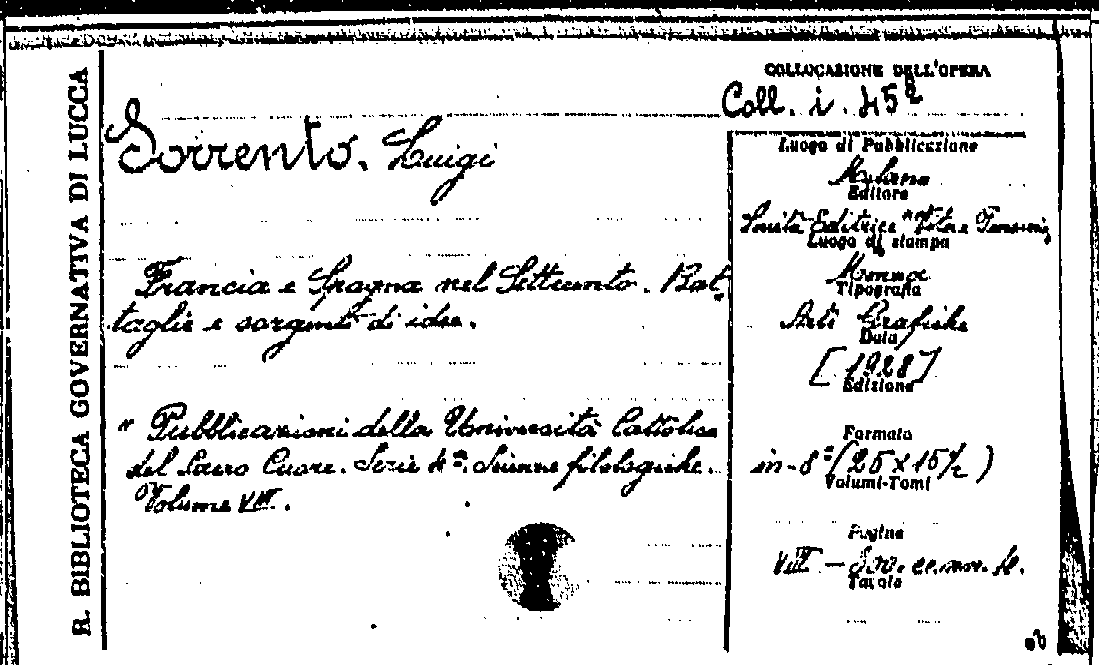 R. BIBLIOTECA GOVERNATIVA DI LUCCA
Sorrento. Luigi
Francia e Spagna nel Settecento. Bat-
taglie e sorgenti di idee.
" Pubblicazioni della Università Cattolica
del Sacro Cuore. Serie 4ª. Scienze filologiche.
Volume VIII.
COLLOCAZIONE DELL'OPERA
Coll. i. 45
Luogo di Pubblicazione
Milano
Editore
Società Editrice "Vita e Pensiero
Luogo di stampa
Monza
Tipografia
Arti Grafiche
Data
[1928]
Edizione
Formato
in-8° (25 x 15½)
Volumi-Tomi
Pagine
VIII –
Tavole